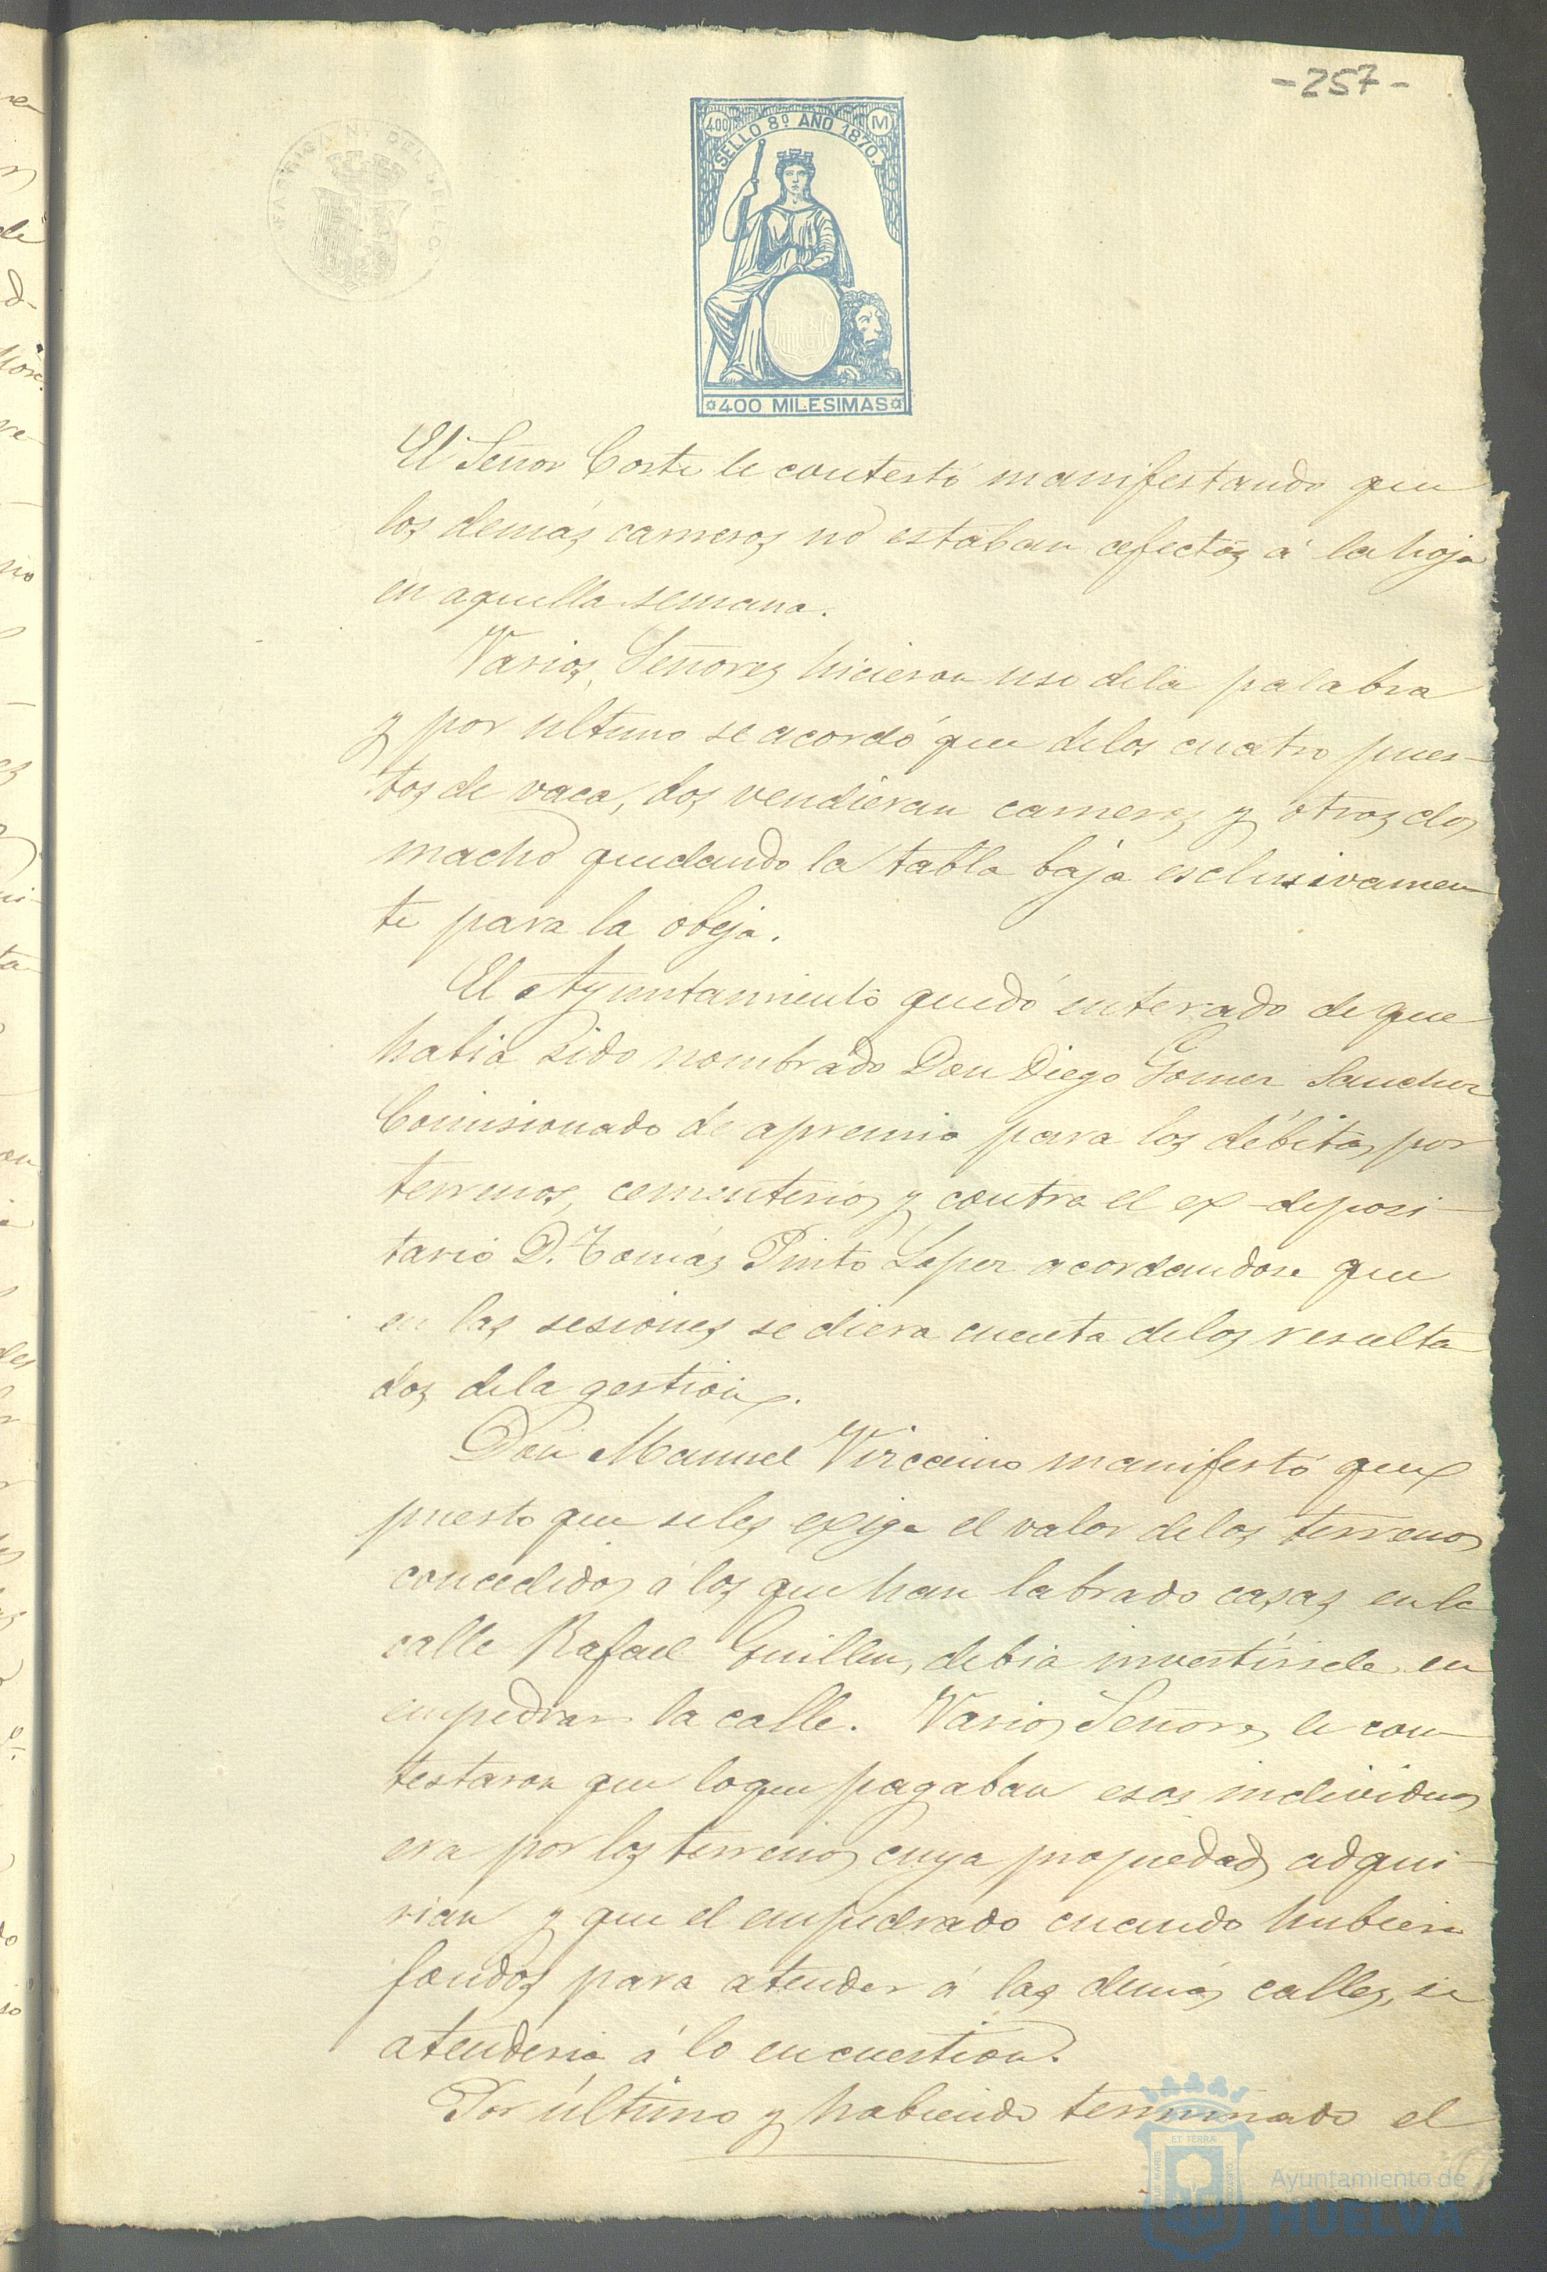 -257-
FABRICA N. DEL SELLO
400 SELLO 8º AÑO 1870. M
400 MILESIMAS
El Señor Corte le contestó manifestando que
los demás carneros no estaban afectos á la hoja
en aquella semana.
Varios Señores hicieron uso dela palabra
y por ultimo se acordó que delos cuatro pues-
tos de vaca, dos vendieran carneros y otros dos
macho quedando la tabla baja esclusivamen
te para la obeja.
El Ayuntamiento quedó enterado de que
habia sido nombrado Don Diego Gomez Sanchez
Comisionado de apremio para los débitos por
terrenos, cementerios y contra el ex-deposi-
tario D. Tomás Pinto Lopez acordandose que
en las sesiones se diera cuenta delos resulta
dos dela gestion.
Don Manuel Vizcaino manifestó que
puesto que seles exige el valor delos terrenos
concedidos á los que han labrado casas en la
calle Rafael Guillen, debia invertirsele en
empedrar la calle. Varios Señores le con-
testaron que loque pagaban esos individuos
era por los terrenos cuya propiedad adqui-
rian y que el empedrado cuando hubiera
fondos para atender á las demás calles, se
atenderia á lo encuestion.
Por último y habiendo terminado el
ET TERRÆ
Ayuntamiento de
HUELVA